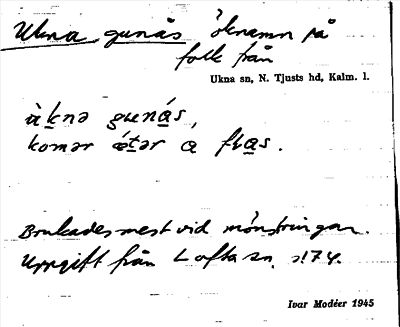 Ukna gunås öknamn på
folk från
Ukna sn, N. Tjusts hd, Kalm. l.
ùknə gunás,
komər ǿtər a flas.
Brukades mest vid mönstringar.
Uppgift från Lofta sn. s174.
Ivar Modéer 1945